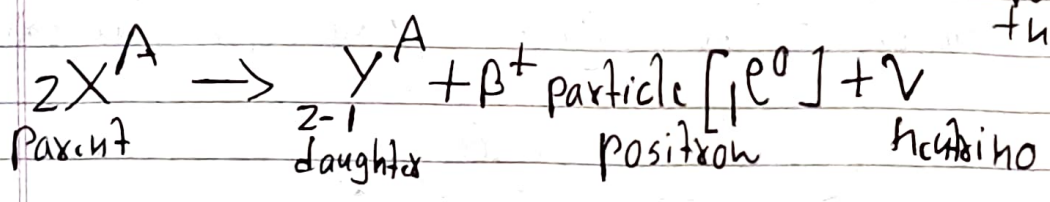 +u
zX^A → z-1Y^A + β⁺ particle [₁e⁰] + ν
Parent daughter positron neutrino